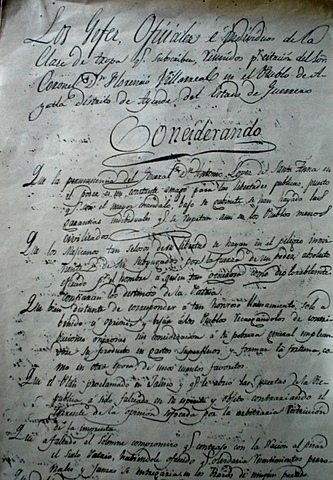 Los Jefes, Oficiales é individuos de la
Clase de tropa q. subscriben, reunidos p. citacion del Señor
Coronel Dn. Florencio Villarreal en el Pueblo de A-
yutla distrito de Ayende, del Estado de Guerrero.
Considerando
Que la permanencia del General Dn. Antonio Lopez de Santa Anna en
el Poder es un constante amago para las libertades publicas, puesto
q. con el mayor escandalo, bajo su gobierno se han hoyado las
garantias individuales q. se respetan aun en los Paises menos
civilizados
Que los Mexicanos tan celosos de su libertad se hayan en el peligro inmi-
nente de ser subyugados por la fuerza de un poder absoluto
ejercido p. el hombre a quien tan
confiaron los destinos de la Patria
Que bien distante de corresponder a tan honroso llamamiento, solo ha
oprimir y vejar a los Pueblos recargandolos de contri-
buciones onerosas sin consideracion a la pobreza general emplean-
dose su producto en gastos superfluos y formar la fortuna, co-
mo en otra época de unos cuantos favoritos
Que el Plan proclamado en Jalisco y q. le abrió las puertas de la Re-
publica á sido falseado en su espiritu y objeto contrariando el
torrente de la opinion sofocada por la arbitraria restriccion
de la imprenta
Que á faltado al solemne compromiso q. contrajo con la Nacion al pisar
el suelo Patrio, habiendole ofrecido q. olvidaria resentimientos perso-
nales y jamas se entregaria en los brazos de ningun partido